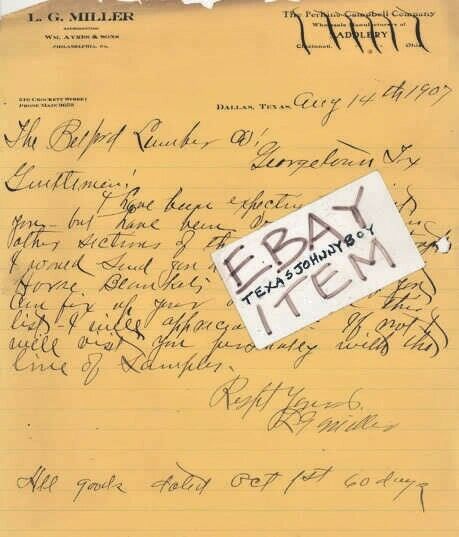 L. G. MILLER
REPRESENTING
WM. AYRES & SONS
PHILADELPHIA, PA.
The Perkins-Campbell Company
Wholesale Manufacturers of
SADDLERY
Cincinnati, Ohio
210 CROCKETT STREET
PHONE MAIN
DALLAS, TEXAS, Aug 14th 1907
The Belford Lumber Co!
Georgetown Tx
Gentlemen!
I have been
you - but have been
other sections of the
I would send you
Horse Blankets
you
can fix up your this
list - I will If not I
will visit you with the
line of Samples.
Respt Yours.
L G Miller
All goods dated Oct 1st 60 days
EBAY
TEXASJOHNNYBOY
ITEM